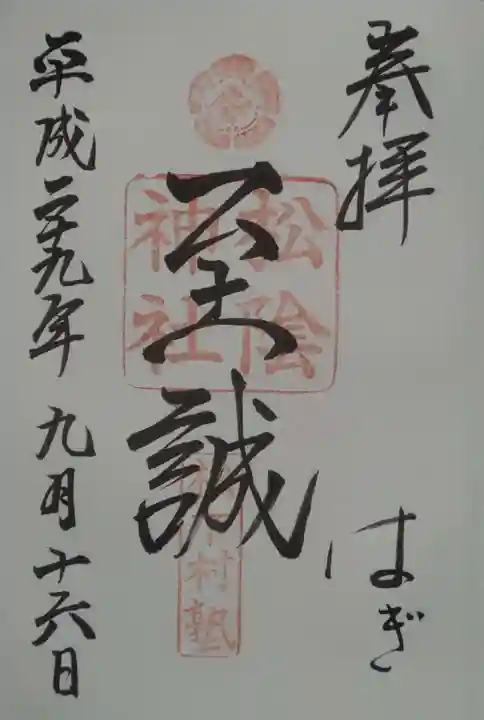 奉拝
はぎ
至誠
松陰
神社
松下村塾
平成二十九年九月十六日